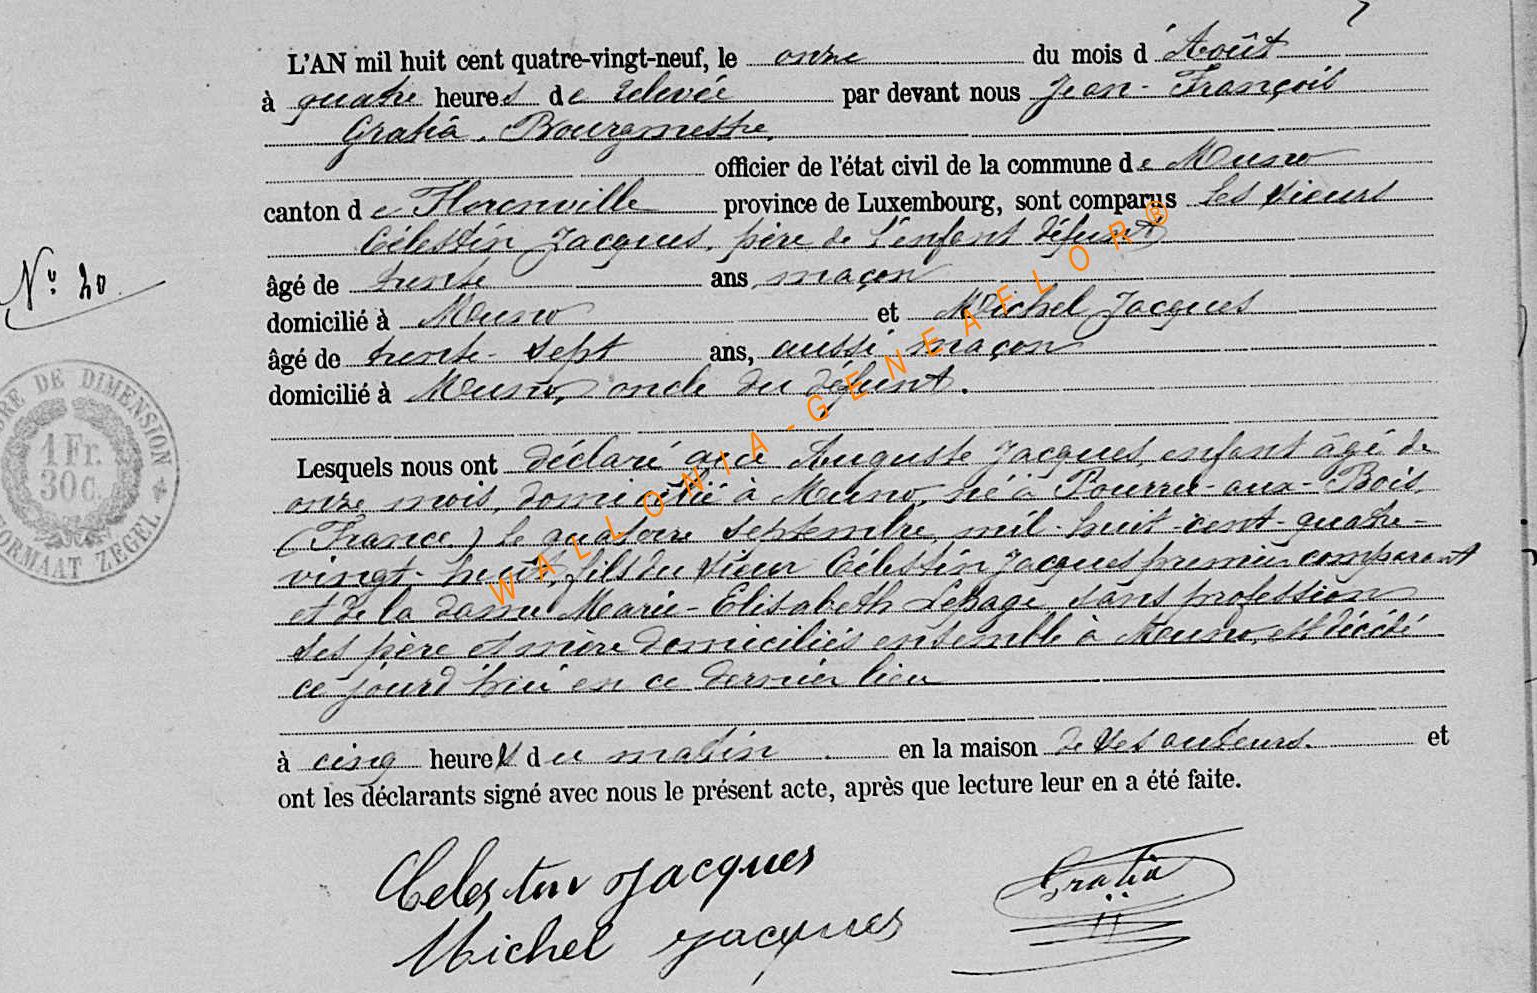 L'AN mil huit cent quatre-vingt-neuf, le onze du mois d'Août
à quatre heures de relevée par devant nous Jean-François
Gratia, Bourgmestre,
officier de l'état civil de la commune de Muno
canton de Florenville province de Luxembourg, sont comparus les sieurs
Célestin Jacques, père de l'enfant défunt
âgé de trente ans, maçon
domicilié à Muno et Michel Jacques
âgé de trente-sept ans, aussi maçon
domicilié à Muno, oncle du défunt.
Lesquels nous ont déclaré que Auguste Jacques, enfant âgé de
onze mois, domicilié à Muno, né à Pourru-aux-Bois,
(France) le quatorze septembre mil-huit-cent-quatre-
vingt-huit, fils du sieur Célestin Jacques premier comparant
et de la dame Marie-Elisabeth Lepage sans profession
ses père et mère domiciliés ensemble à Muno, est décédé
ce jourd'hui en ce dernier lieu
à cinq heures du matin en la maison de ses auteurs. et
ont les déclarants signé avec nous le présent acte, après que lecture leur en a été faite.
Celestin Jacques
Michel Jacques
Gratia
N° 20
DE DIMENSION
1 Fr.
30 c.
FORMAAT ZEGEL
WALLONIA-GENEAFLOR®